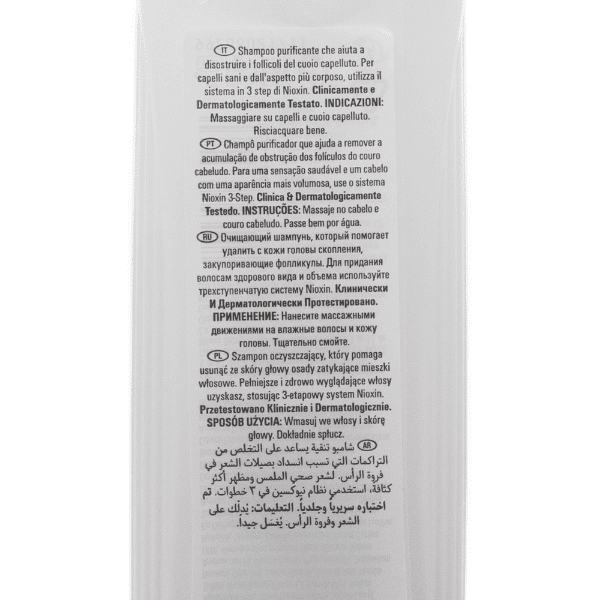 IT Shampoo purificante che aiuta a
disostruire i follicoli del cuoio capelluto. Per
capelli sani e dall'aspetto più corposo, utilizza il
sistema in 3 step di Nioxin. Clinicamente e
Dermatologicamente Testato. INDICAZIONI:
Massaggiare su capelli e cuoio capelluto.
Risciacquare bene.
PT Champô purificador que ajuda a remover a
acumulação de obstrução dos folículos do couro
cabeludo. Para uma sensação saudável e um cabelo
com uma aparência mais volumosa, use o sistema
Nioxin 3-Step. Clinica & Dermatologicamente
Testedo. INSTRUÇÕES: Massaje no cabelo e
couro cabeludo. Passe bem por água.
RU Очищающий шампунь, который помогает
удалить с кожи головы скопления,
закупоривающие фолликулы. Для придания
волосам здорового вида и объема используйте
трехступенчатую систему Nioxin. Клинически
И Дерматологически Протестировано.
ПРИМЕНЕНИЕ: Нанесите массажными
движениями на влажные волосы и кожу
головы. Тщательно смойте.
PL Szampon oczyszczający, który pomaga
usunąć ze skóry głowy osady zatykające mieszki
włosowe. Pełniejsze i zdrowo wyglądające włosy
uzyskasz, stosując 3-etapowy system Nioxin.
Przetestowano Klinicznie i Dermatologicznie.
SPOSÓB UŻYCIA: Wmasuj we włosy i skórę
głowy. Dokładnie spłucz.
AR شامبو تنقية يساعد على التخلص من
التراكمات التي تسبب انسداد بصيلات الشعر في
فروة الرأس. لشعر صحي الملمس ومظهر أكثر
كثافة، استخدمي نظام نيوكسين في ٣ خطوات. تم
اختباره سريرياً وجلدياً. التعليمات: يُدلّك على
الشعر وفروة الرأس. يُغسَل جيداً.